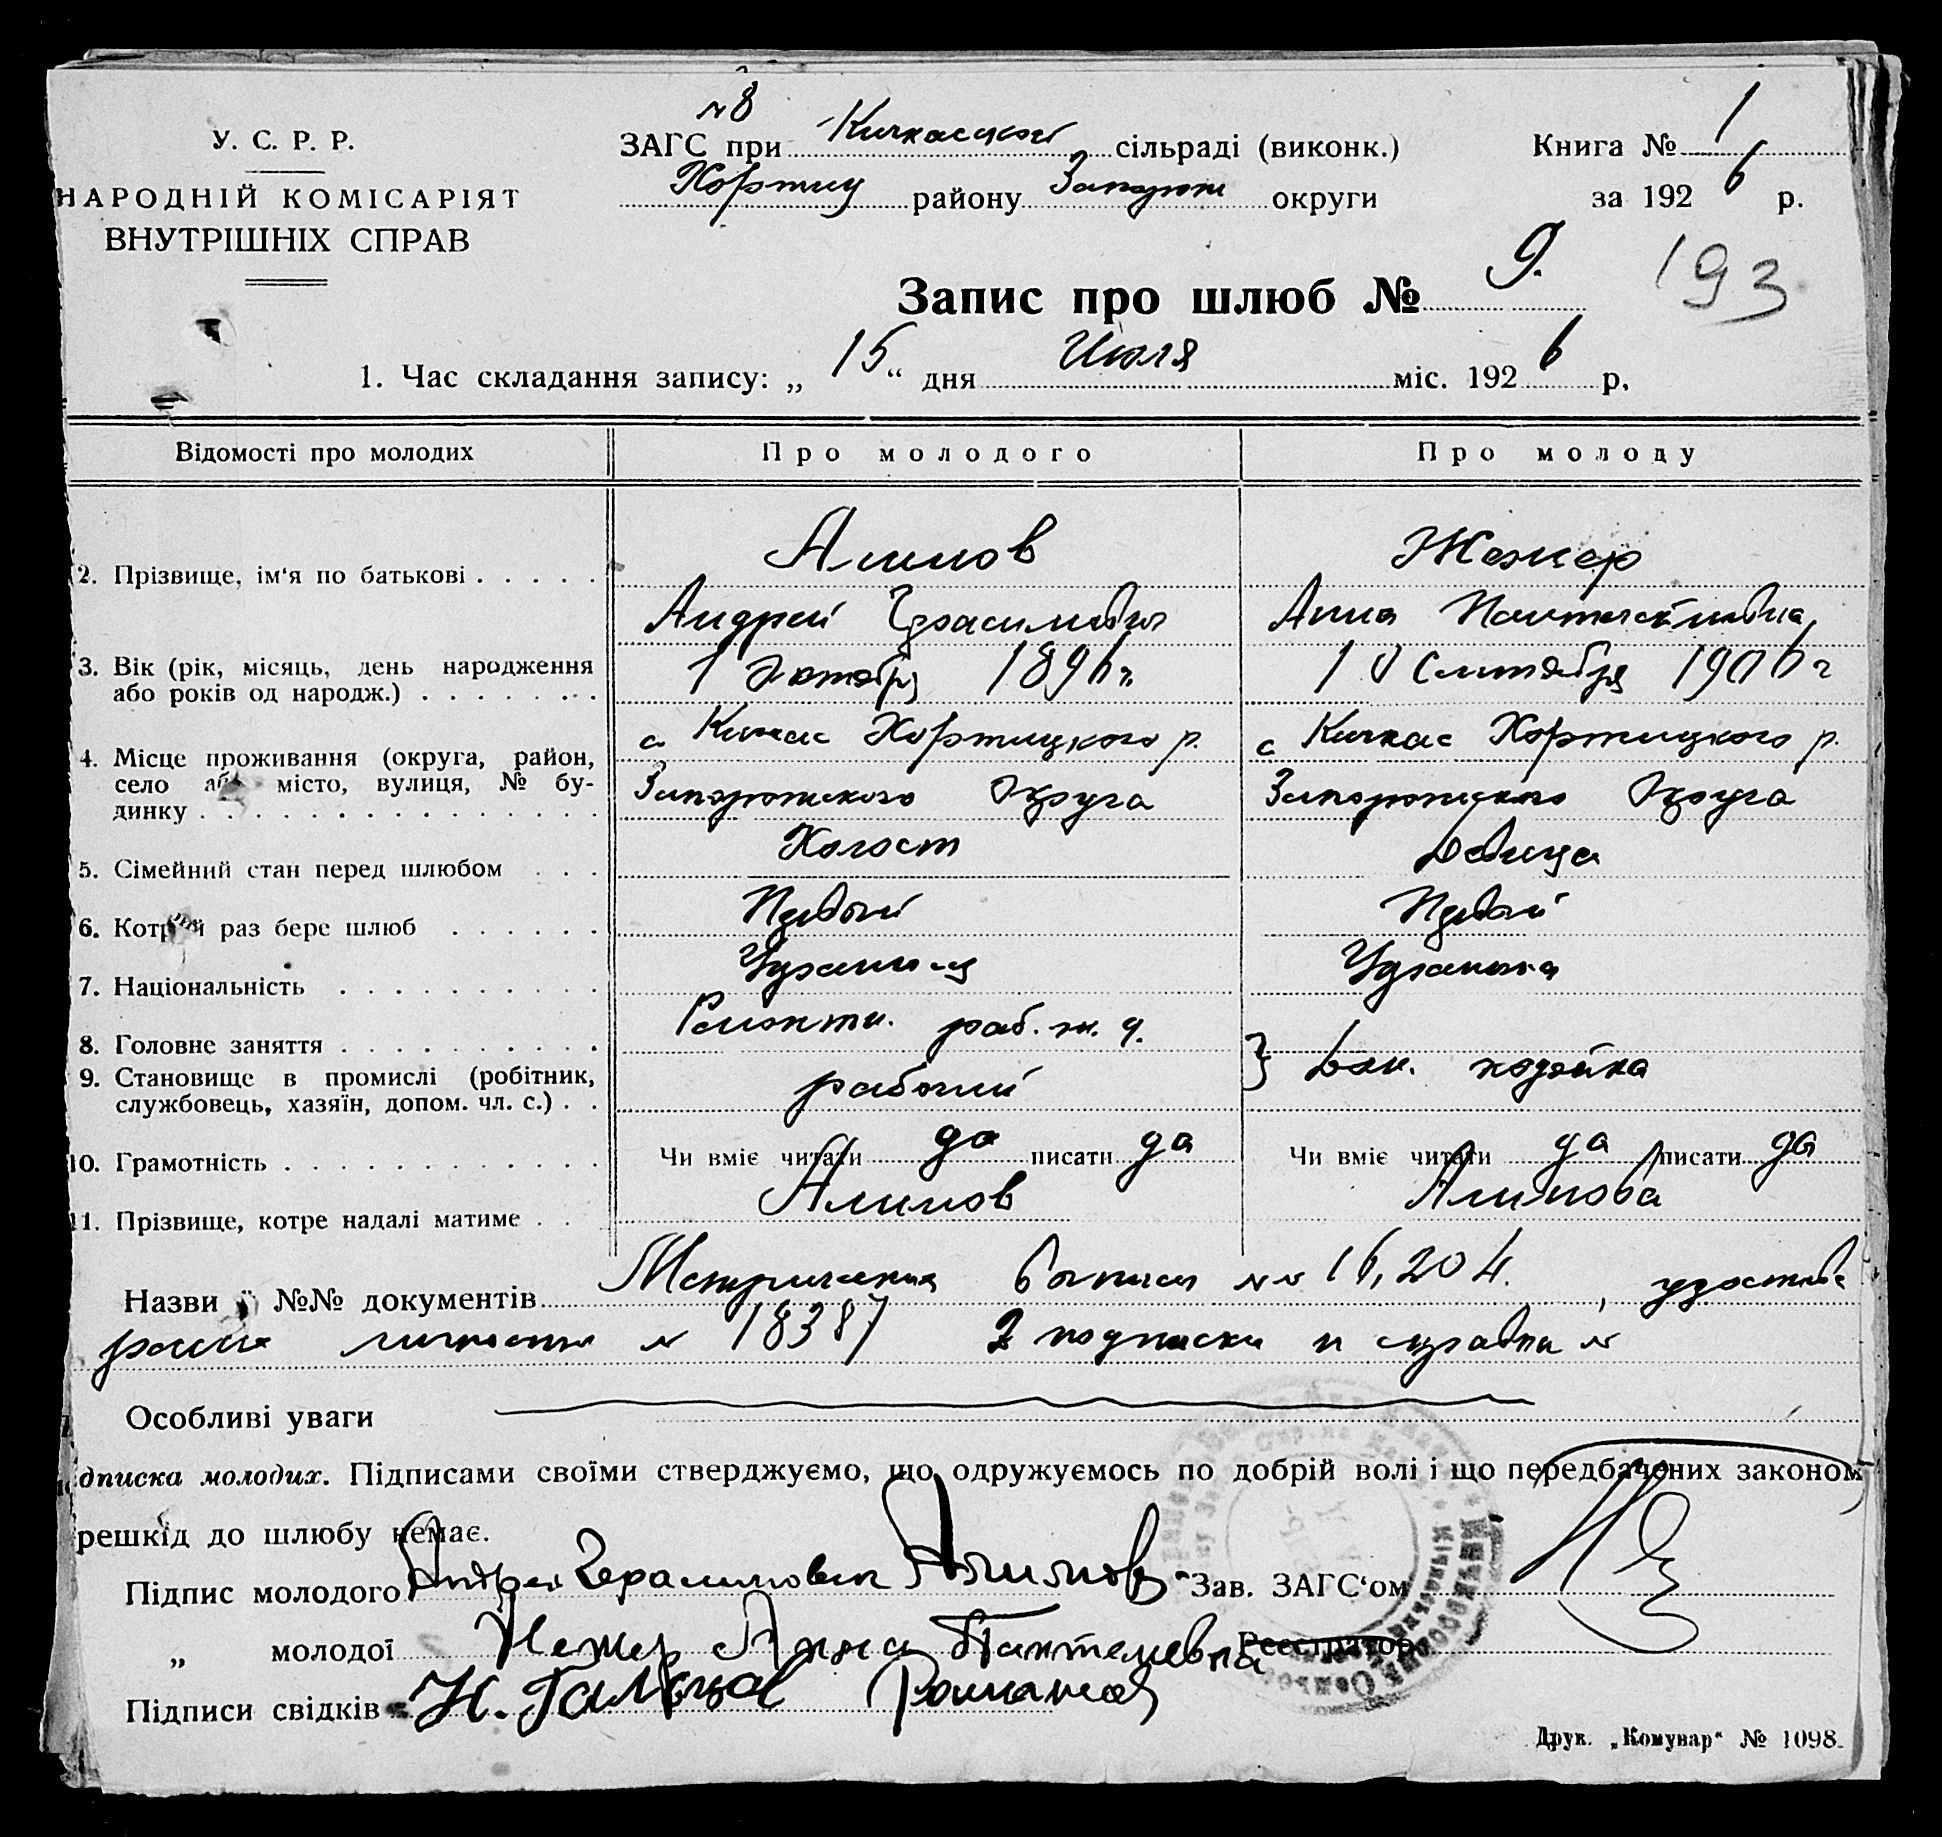 У. С. Р. Р.
НАРОДНІЙ КОМІСАРІЯТ
ВНУТРІШНІХ СПРАВ
№ 8
ЗАГС при Кичкасской сільраді (виконк.)
Хортиц району Запорож округи
Книга № 1
за 192 6 р.
Запис про шлюб № 9.
193
1. Час складання запису: „ 15 “ дня Июля міс. 192 6 р.
Відомості про молодих Про молодого Про молоду
2. Прізвище, ім‘я по батькові . . . . . Алимов
Андрей Герасимович Анна
3. Вік (рік, місяць, день народження
або років од народж.) . . . . . . . 1 Октября 1896 г. 10 Сентября 1906 г
4. Місце проживання (округа, район,
село або місто, вулиця, № бу-
динку . . . . . . . . . . . . . . .
с Кичкас Хортицкого р. с Кичкас Хортицкого р.
Запорожского Округа Запорожского Округа
5. Сімейний стан перед шлюбом . . . Холост Девица
6. Котрий раз бере шлюб . . . . . . Первый Первый
7. Національність . . . . . . . . . . Украинец Украинка
8. Головне заняття . . . . . . . . . . Ремонтн. раб. ж. д.
9. Становище в промислі (робітник,
службовець, хазяїн, допом. чл. с.) . . рабочий } Дом. хозяйка
10. Грамотність . . . . . . . . . . . . Чи вміє читати да писати да Чи вміє читати да писати да
11. Прізвище, котре надалі матиме . . Алимов Алимова
Назви й №№ документів Метрическая выписи №№ 16,204. , удостове
рение личности № 18387 2 подписки и справки №
Особливі уваги
дписка молодих. Підписами своїми стверджуємо, що одружуємось по добрій волі і що передбачених законом
решкід до шлюбу немає.
Підпис молодого Андрей Герасимович Алимов Зав. ЗАГС‘ом
„ молодої Анна Пантелеевна Реєстратор
Підписи свідків
Друк. „Комунар“ № 1098.